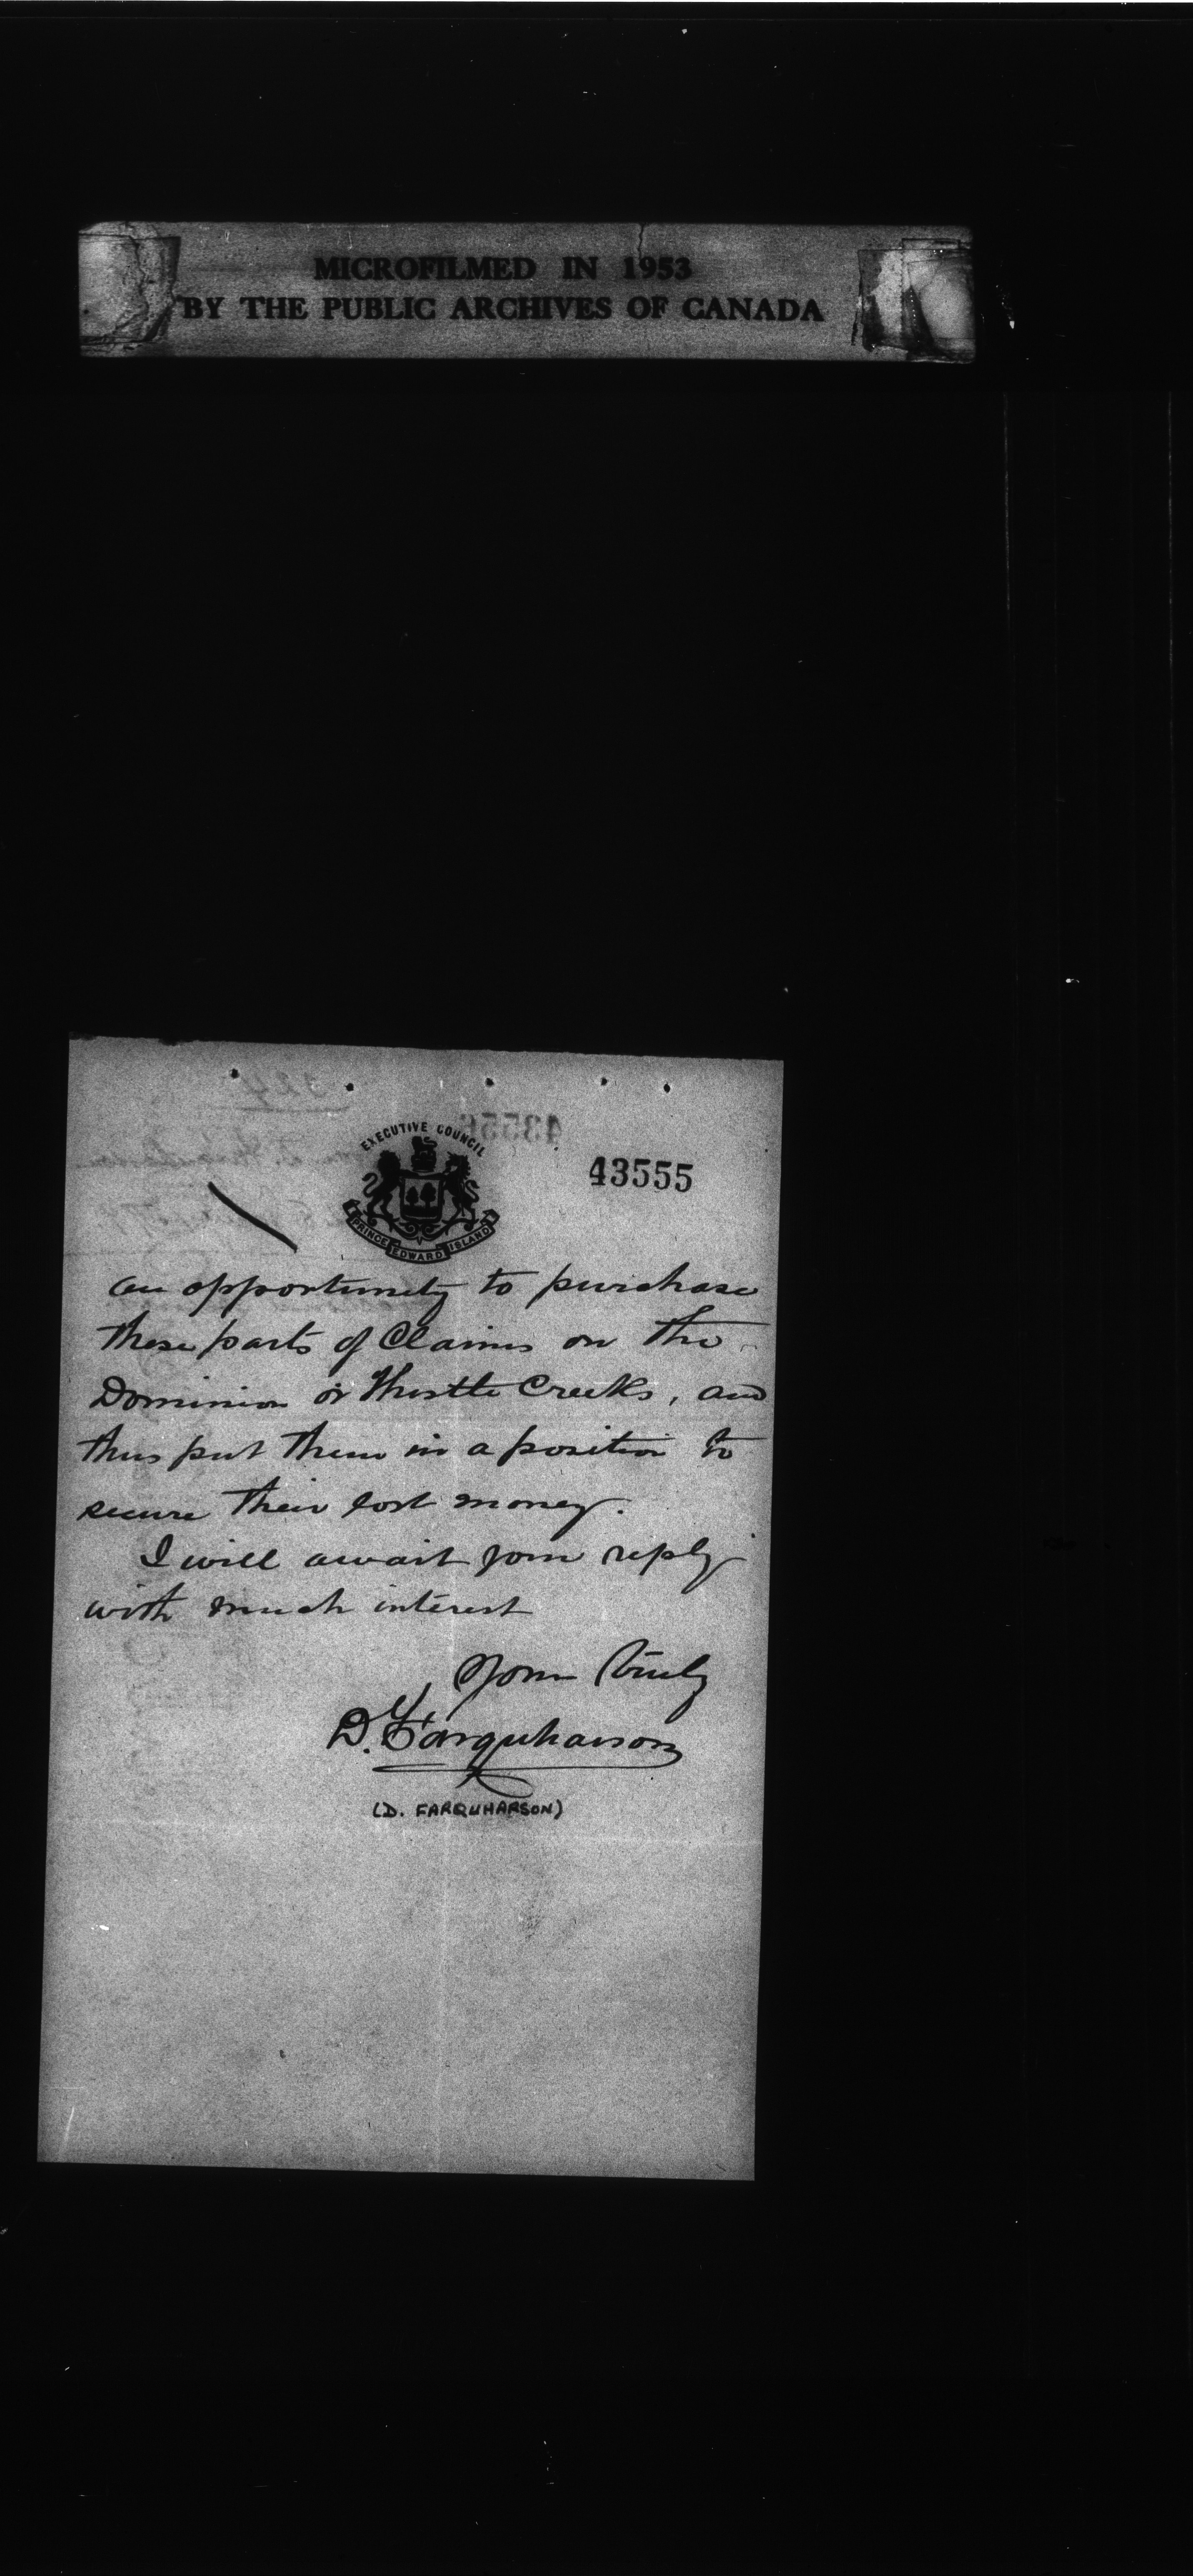 MICROFILMED IN 1953
BY THE PUBLIC ARCHIVES OF CANADA
EXECUTIVE COUNCIL
43555
PRINCE EDWARD ISLAND
an opportunity to purchase
these parts of Claims on the
Dominion or Thistle Creeks, and
thus put them in a position to
secure their lost money.
I will await your reply
with much interest
Yours truly
D. Farquharson
(D. FARQUHARSON)